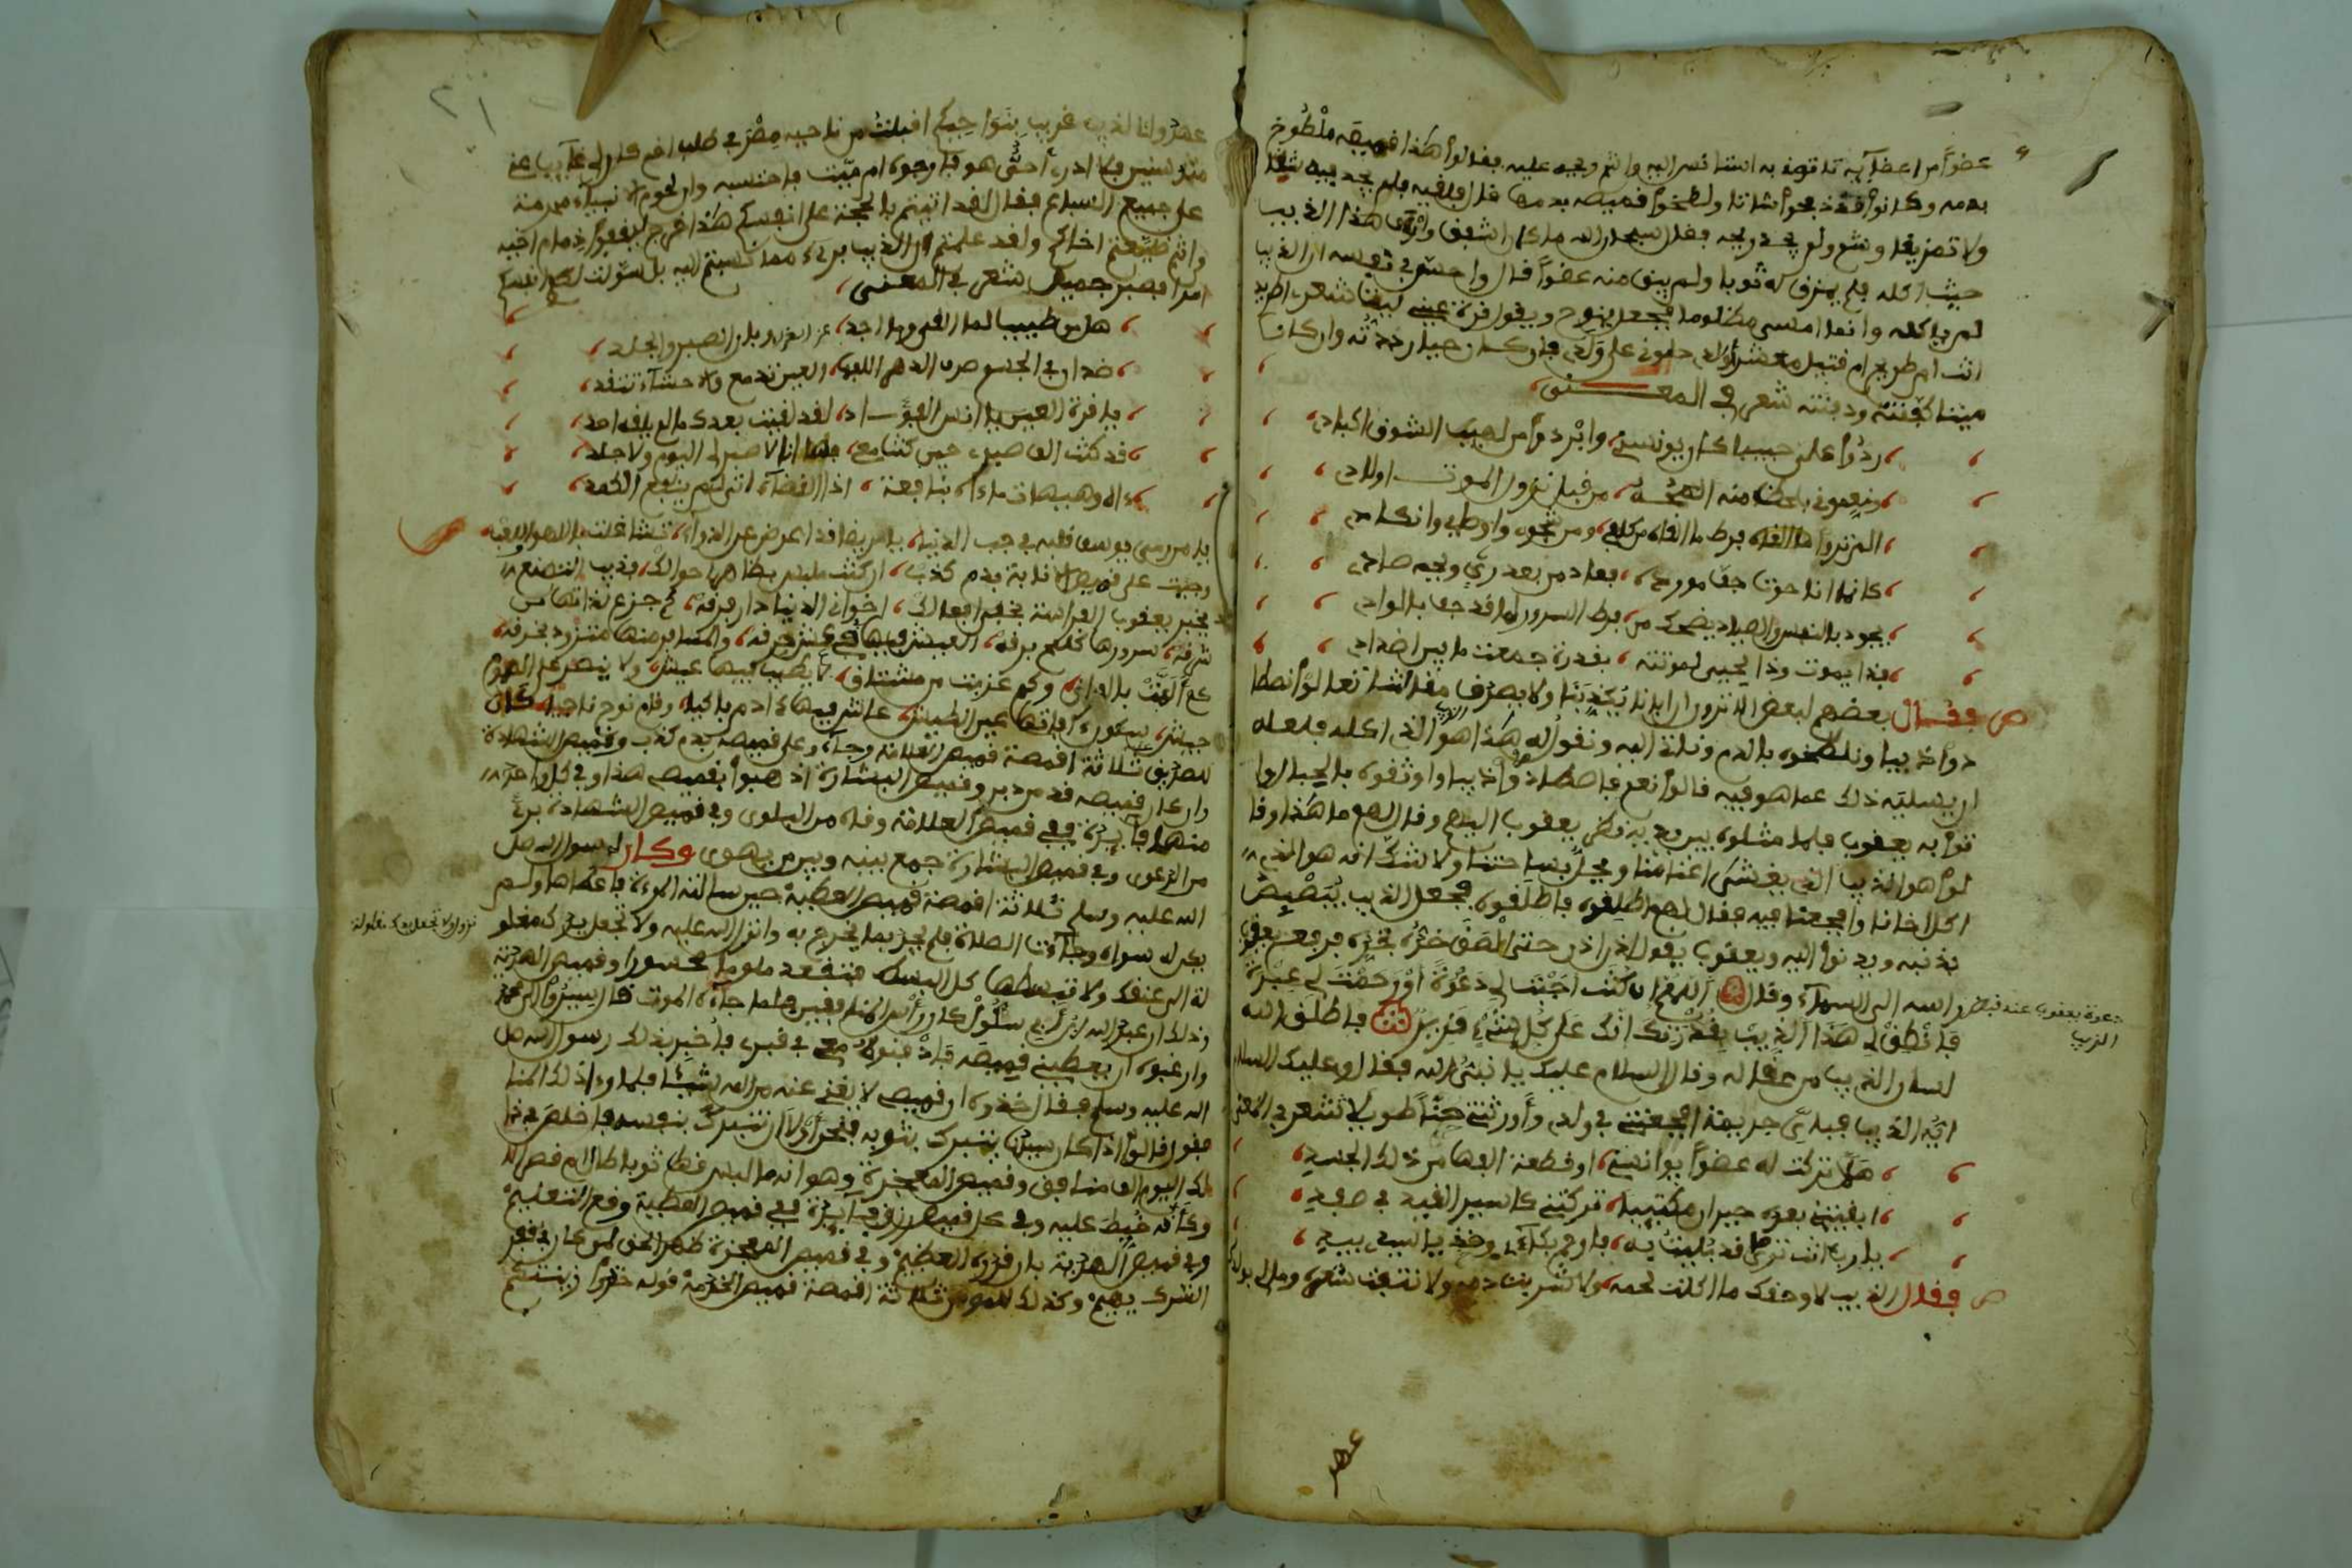 عضوا من اعضايه تا توه به استانس اليه واشم ويحه عليه فقالوا هذا قميصه ملطوخ
بدمه وكانوا قد ذبحوا شاتا ولطخوا قميصه بدمها فلما قلبه فلم يجد فيه شيا
ولا تمزيقا وشمه ولم يجد ريحه فقال سبحان الله ما كان اشفق وارق هذا الذيب
حيث اكله فلم يمزق له ثوبا ولم يبق منه عضوا قال واحس في نفسه ان الذيب
لم ياكله وانما امسى مظلوما فجعل ينوح ويقول قرة عيني ليت شعري اطريد
انت ام طريح ام قتيل معشر اولادي دلوني على ولدي فان كان حيا رددته وان كان
ميتا كفنته ودفنته شعر في المعنى
ردوا علي حبيبا كان يونسني وابردوا من لهيب الشوق اكبادي
ومتعوني بلحظ منه من قبل نزول الموت اولادي
الم تروا ما القاه فرط ما القاه من كلفي ومن شجوه واوطي وانكادي
كانما انا حوت جف مورده فعاد من بعد ري وجه صادي
يجود بالنفس والصياد يضحك من فرط السرور لما قد جف بالوادي
فذا يموت وذا يحيى لموتته بقدرة جمعت ما بين اضدادي
فقال بعضهم لبعض الا ترون ان ابانا يكذبنا ولا يصدق مقالتنا تعالوا نصطا
دوا ذيبا ونلطخوه بالدم وناتي اليه ونقول له هذا هو الذي اكله فلعله
ان يسليه ذلك عما هو فيه قالوا نعم فاصطادوا ذيبا واوثقوه بالحبال وا
توا به يعقوب فلما مثلوه بين يديه نظر يعقوب اليهم وقال لهم ما هذا وقا
لوا هو الذيب الذي يغشى اغنامنا ويحل بساحتنا ولا شك انه هو الذي
اكل اخانا وافجعنا فيه فقال لهم اطلقوه فاطلقوه فجعل الذيب يبصبص
بذنبه ويدنوا اليه ويعقوب يقول ادن ادن حتى الصق خده بخده فرفع يعقوب
راسه الى السماء وقال اللهم ان كنت اجبت لي دعوة او رحمت لي عبرة
فانطق لي هذا الذيب بقدرتك انك على كل شيء قدير فاطلق الله
لسان الذيب من عقاله وقال السلام عليك يا نبي الله فقال وعليك السلام
ايه الذيب فباي جريمة افجعتني في ولدي واورثتني حزنا طويلا شعر في المعنى
هلا تركت له عضوا يوانسني او قطعة القها من ذلك الجسد
ابقيتني بعده حيران مكتيبا تركتني كاسير القيد في صفد
يا رب انت ترى ما قد بليت به فارحم بكاءي وخذ يا سيدي بيدي
فقال الذيب لا وحقك ما اكلت لحمه ولا شربت دمه ولا نتفت شعره ومالي بولدك
دعوة يعقوب عند قبض
الذيب
عهد
عهد وانا الذيب غريب بنواحيكم اقبلت من ناحية مصر في طلب اخ لي غاب عني
منذ سنين فلا ادري احي هو فارجوه ام ميت فاحتسبه وان لحوم الانبياء محرمة
على جميع السباع فقال لقد اتيتم بالحجة على انفسكم هذا خرج ليقفوا ذمام اخيه
وانتم ضيعتم اخاكم ولقد علمتم ان الذيب بريء مما نسبتم اليه بل سولت لكم انفسكم
امرا فصبر جميل شعر في المعنى
هل من طبيب لما القى وما اجد عز العزا وبان الصبر والجلد
ضدان في الجسم صرف الدهر العين تدمع والاحشاء تتقد
يا قرة العين يا انس الفؤاد لقد لقيت بعدك ما لم يلقه احد
قد كنت الف صبري حين كنت معي فلا انا لا صبر لي اليوم ولا جلد
اه وهيهات ما اه بنافعة اذا القضاء اتى لم ينفع الكمد
يا من رمى يوسف قلبه في جب الدنيا يا مريضا قد اعرض عن الدواء تشاغلت باللهو
وجيت على قميص الانابة بدم كذب ان كنت ملبس بظاهر احوالك فذيب التصنع
يخبر يعقوب الفراسة بخفي افعالك اخواني الدنيا دار فرقة كم جزع لذاتها من
شرقة سرورها كلمح برقة العيش فيها في عيش حرقة والمسافر منها متزود بخرقة
كم القت بالفراق وكم عذبت من مشتاق لا يطيب فيها عيش ولا ينصر على الهموم
جيش سكون افاتها عين الطيش عاش فيها ادم باكيا وقام نوح ناحيا كان
للصديق ثلاثة اقمصة قميص العلامة وجاءو على قميصه بدم كذب وقميص الشهادة
وان كان قميصه قد من دبر وقميص البشارة اذهبوا بقميصي هذا وفي كل واحد
منها فايدة ففي قميص العلامة وقاه من البلوى وفي قميص الشهادة برئ
من الدعوى وفي قميص البشارة جمع بينه وبين من يهوى وكان لرسول الله صلى
الله عليه وسلم ثلاثة اقمصة قميص العطية حين سالته المرءة فاعطاها ولم
يكن له سواه وجاءت الصلاة فلم يجد بما يخرج به وانزل الله عليه ولا تجعل يدك مغلو
لة الى عنقك ولا تبسطها كل البسط فتقعد ملوما محسورا وقميص الحرمة
وذلك ان عبد الله بن ابي سلول كان راس المنافقين فلما جاءه الموت قال سيروا الى محمد
وارغبوه ان يعطيني قميصه فادفنوه معي في قبري فاخبر بذلك رسول الله صلى
الله عليه وسلم فقال خذوه ان قميصي لا يغني عنه من الله شيئا فلما راوا ذلك المنا
فقون قالوا اذا كان سيدنا يتبرك بثوبه فنحن اولى ان نتبرك بنفسه فاخلص في ذا
لك اليوم الف منافق وقميص المعجزة وهو انه ما لبس قط ثوبا طال ام قصر الا
وكانه خيط عليه وفي كل قميص فايدة ففي قميص العطية وقع التعليم
وفي قميص الحرمة بان قدره العظيم وفي قميص المعجزة ظهر الحق لمن كان في قفر
الشرك يهيم وكذلك للمومن ثلاثة اقمصة قميص الخدمة قوله خذوا زينتكم
نزول ولا تجعل يدك مغلولة